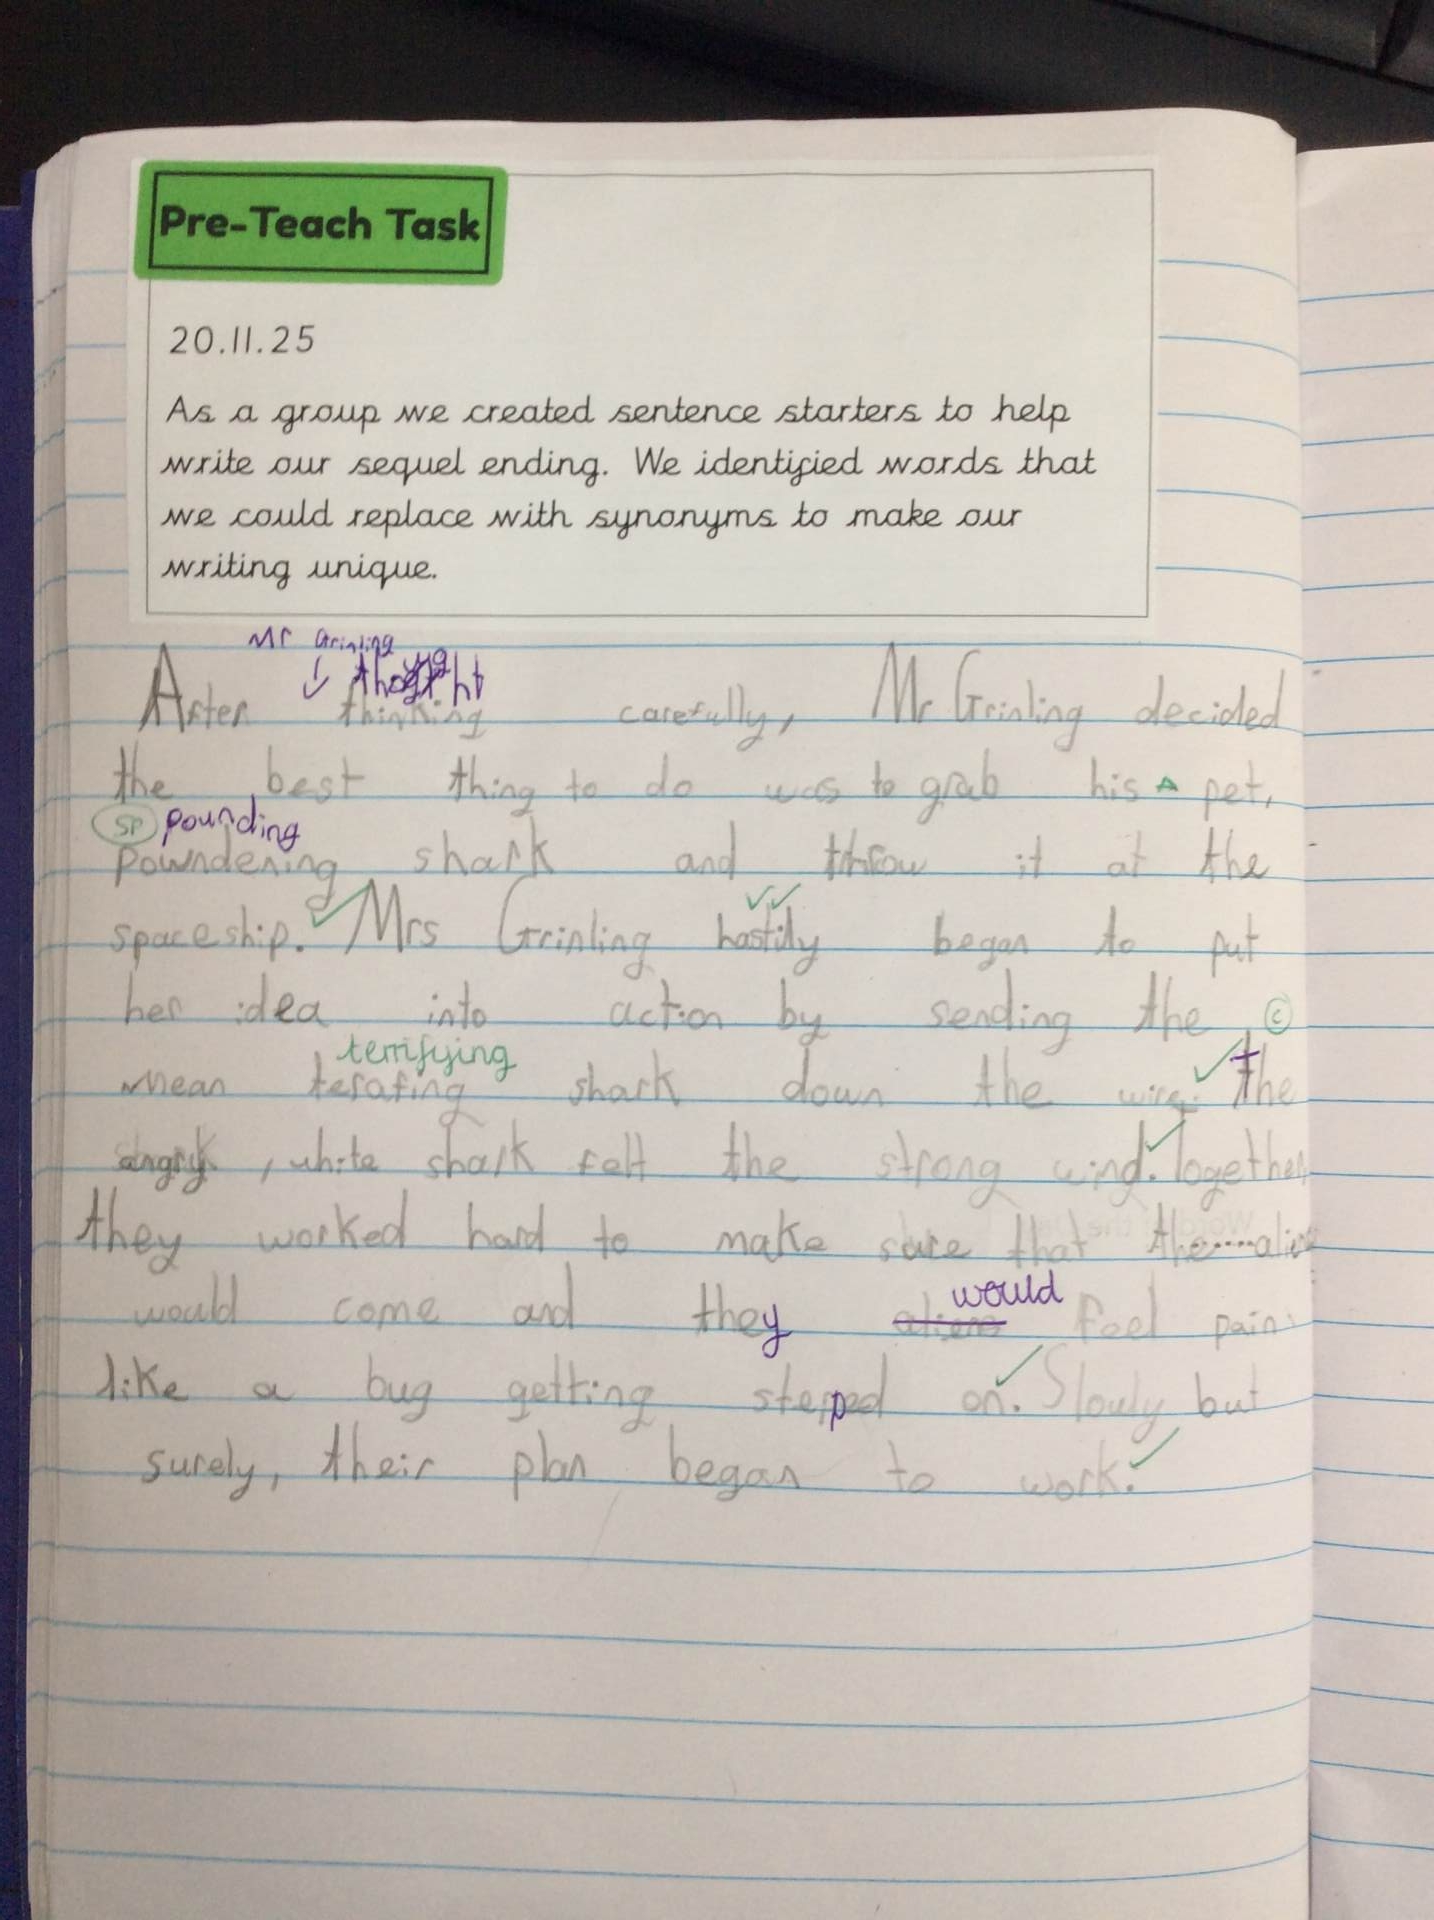 Pre-Teach Task
20.11.25
As a group we created sentence starters to help
write our sequel ending. We identified words that
we could replace with synonyms to make our
writing unique.
Mr Grinling
thought
After thinking carefully, Mr Grinling decided
the best thing to do was to grab his pet,
SP pounding
powndening shark and throw it at the
spaceship. Mrs Grinling hastily began to put
her idea into action by sending the C
terrifying
mean terafing shark down the wire. The
angry, white shark felt the strong wind. Together
they worked hard to make sure that the.....
would
would come and they aliens feel pain
like a bug getting stepped on. Slowly but
surely, their plan began to work.